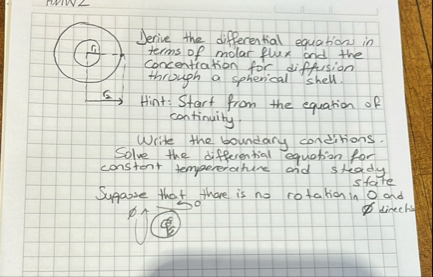 HMW2
Derive the differential equation in
terms of molar flux and the
concentration for diffusion
through a spherical shell.
Hint: Start from the equation of
continuity.
Write the boundary conditions.
Solve the differential equation for
constant tempererature and steady
state
Suppose that there is no rotation in θ and
ϕ directio